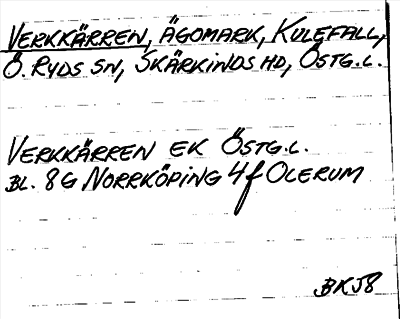 VERKKÄRREN, ÄGOMARK, KULEFALL,
Ö. RYDS SN, SKÄRKINDS HD, ÖSTG.L.
VERKKÄRREN EK ÖSTG.L.
BL. 8G NORRKÖPING 4f OLERUM
BKJ8